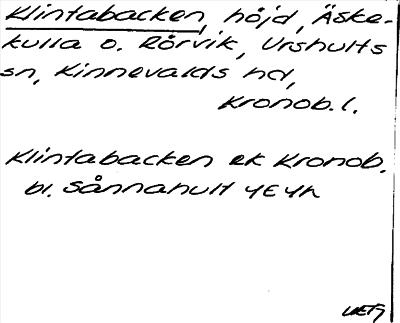 Klintabacken, höjd, Äske-
kulla o. Rörvik, Urshults
sn, Kinnevalds hd,
Kronob. l.
Klintabacken ek Kronob.
bl. Sånnahult 4E4h